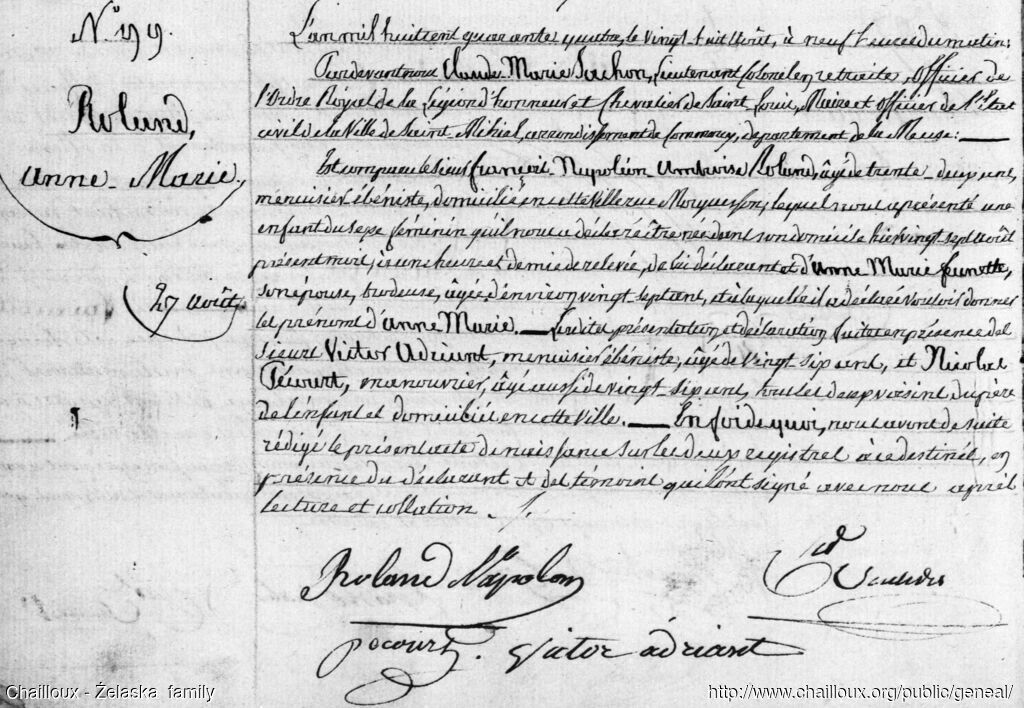 N.º 199.
Roland,
Anne-Marie.
27 Août,
L'an mil huit cent quarante quatre, le vingt huit Août, à neuf heures du matin;
Pardevant nous Claude-Marie, Lieutenant Colonel en retraite, Officier de
l'Ordre Royal de la Légion d'honneur et Chevalier de Saint Louis, Maire et Officier de l'état
civil de la Ville de Saint-Mihiel, arrondissement de Commercy, département de la Meuse: —
Est comparu le sieur François-Napoléon-Ambroise Roland, âgé de trente-deux ans,
menuisier ébéniste, domicilié en cette Ville rue, lequel nous a présenté une
enfant du sexe féminin qu'il nous a déclaré être née dans son domicile hier vingt sept août
présent mois, à une heure et demie de relevée, de lui déclarant et d'Anne Marie Jeunotte,
son épouse, brodeuse, âgée d'environ vingt sept ans, et à laquelle il a déclaré vouloir donner
les prénoms d'Anne Marie. — Les dites présentation et déclaration faites en présence des
sieurs Victor Adriant, menuisier ébéniste, âgé de vingt six ans, et Nicolas
Pécourt, manouvrier, âgé aussi de vingt-six ans, tous les deux voisins du père
de l'enfant et domiciliés en cette Ville. — En foi de quoi, nous avons de suite
rédigé le présent acte de naissance sur les deux registres à ce destinés, en
présence du déclarant et des témoins qui l'ont signé avec nous après
lecture et collation ./.
Roland Napoleon
pecourt. Victor adriant
Chailloux - Żelaska family
http://www.chailloux.org/public/geneal/